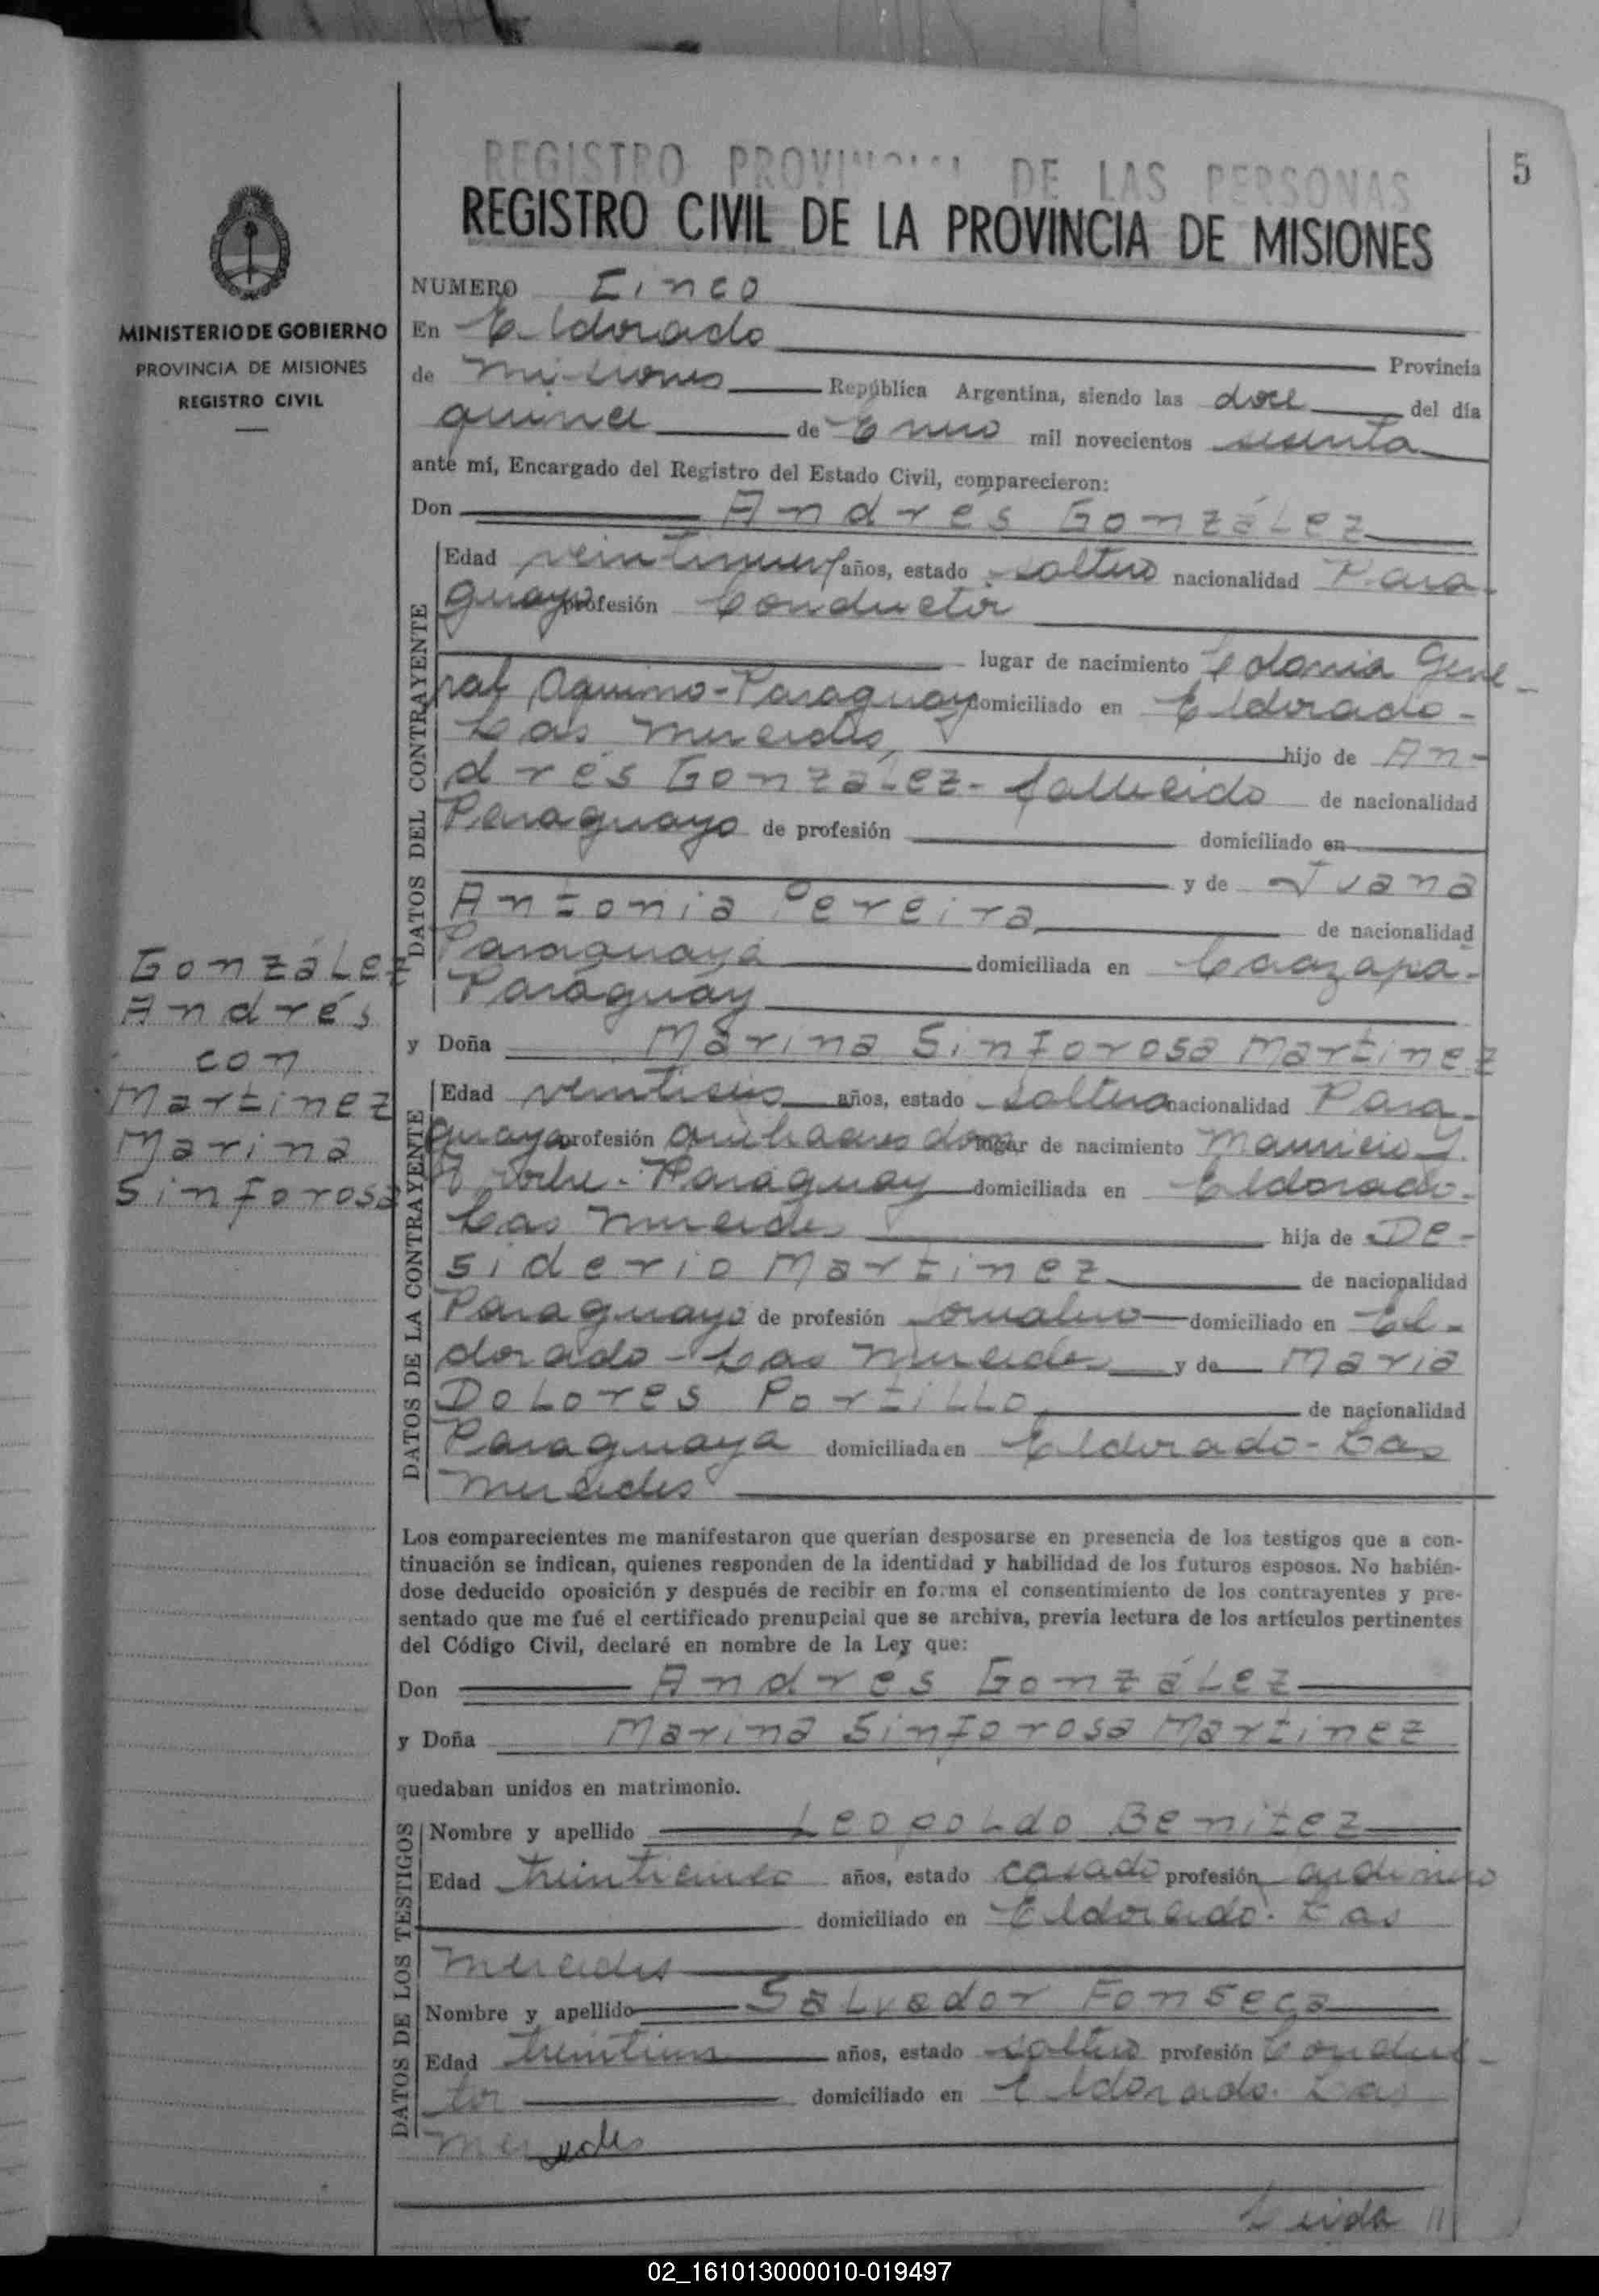 REGISTRO PROVINCIAL DE LAS PERSONAS
5
REGISTRO CIVIL DE LA PROVINCIA DE MISIONES
MINISTERIO DE GOBIERNO
PROVINCIA DE MISIONES
REGISTRO CIVIL
González
Andrés
con
Martinez
Marina
Sinforosa
NUMERO Cinco
En Eldorado Provincia
de Misiones República Argentina, siendo las doce del día
quince de Enero mil novecientos sesenta
ante mí, Encargado del Registro del Estado Civil, comparecieron:
Don Andrés González
DATOS DEL CONTRAYENTE
Edad veintinueve años, estado soltero nacionalidad Para-
guayo profesión Conductor
lugar de nacimiento Colonia Gene-
ral Aquino-Paraguay domiciliado en Eldorado-
Las Mercedes, hijo de An-
drés González- fallecido de nacionalidad
Paraguayo de profesión domiciliado en
y de Juana
Antonia Pereira de nacionalidad
Paraguaya domiciliada en Caazapá-
Paraguay
y Doña Marina Sinforosa Martinez
DATOS DE LA CONTRAYENTE
Edad veintiseis años, estado soltera nacionalidad Para-
guaya profesión quehaceres dom. lugar de nacimiento Mauricio J.
Troche-Paraguay domiciliada en Eldorado-
Las Mercedes hija de De-
siderio Martinez de nacionalidad
Paraguayo de profesión jornalero domiciliado en El-
dorado-Las Mercedes y de Maria
Dolores Portillo de nacionalidad
Paraguaya domiciliada en Eldorado-Las
Mercedes
Los comparecientes me manifestaron que querían desposarse en presencia de los testigos que a con-
tinuación se indican, quienes responden de la identidad y habilidad de los futuros esposos. No habién-
dose deducido oposición y después de recibir en forma el consentimiento de los contrayentes y pre-
sentado que me fué el certificado prenupcial que se archiva, previa lectura de los artículos pertinentes
del Código Civil, declaré en nombre de la Ley que:
Don Andrés González
y Doña Marina Sinforosa Martinez
quedaban unidos en matrimonio.
DATOS DE LOS TESTIGOS
Nombre y apellido Leopoldo Benitez
Edad treinticinco años, estado casado profesión
domiciliado en Eldorado-Las
Mercedes
Nombre y apellido Salvador Fonseca
Edad años, estado soltero profesión Conduc-
tor domiciliado en Eldorado-Las
Mercedes
Leida //
02_161013000010-019497